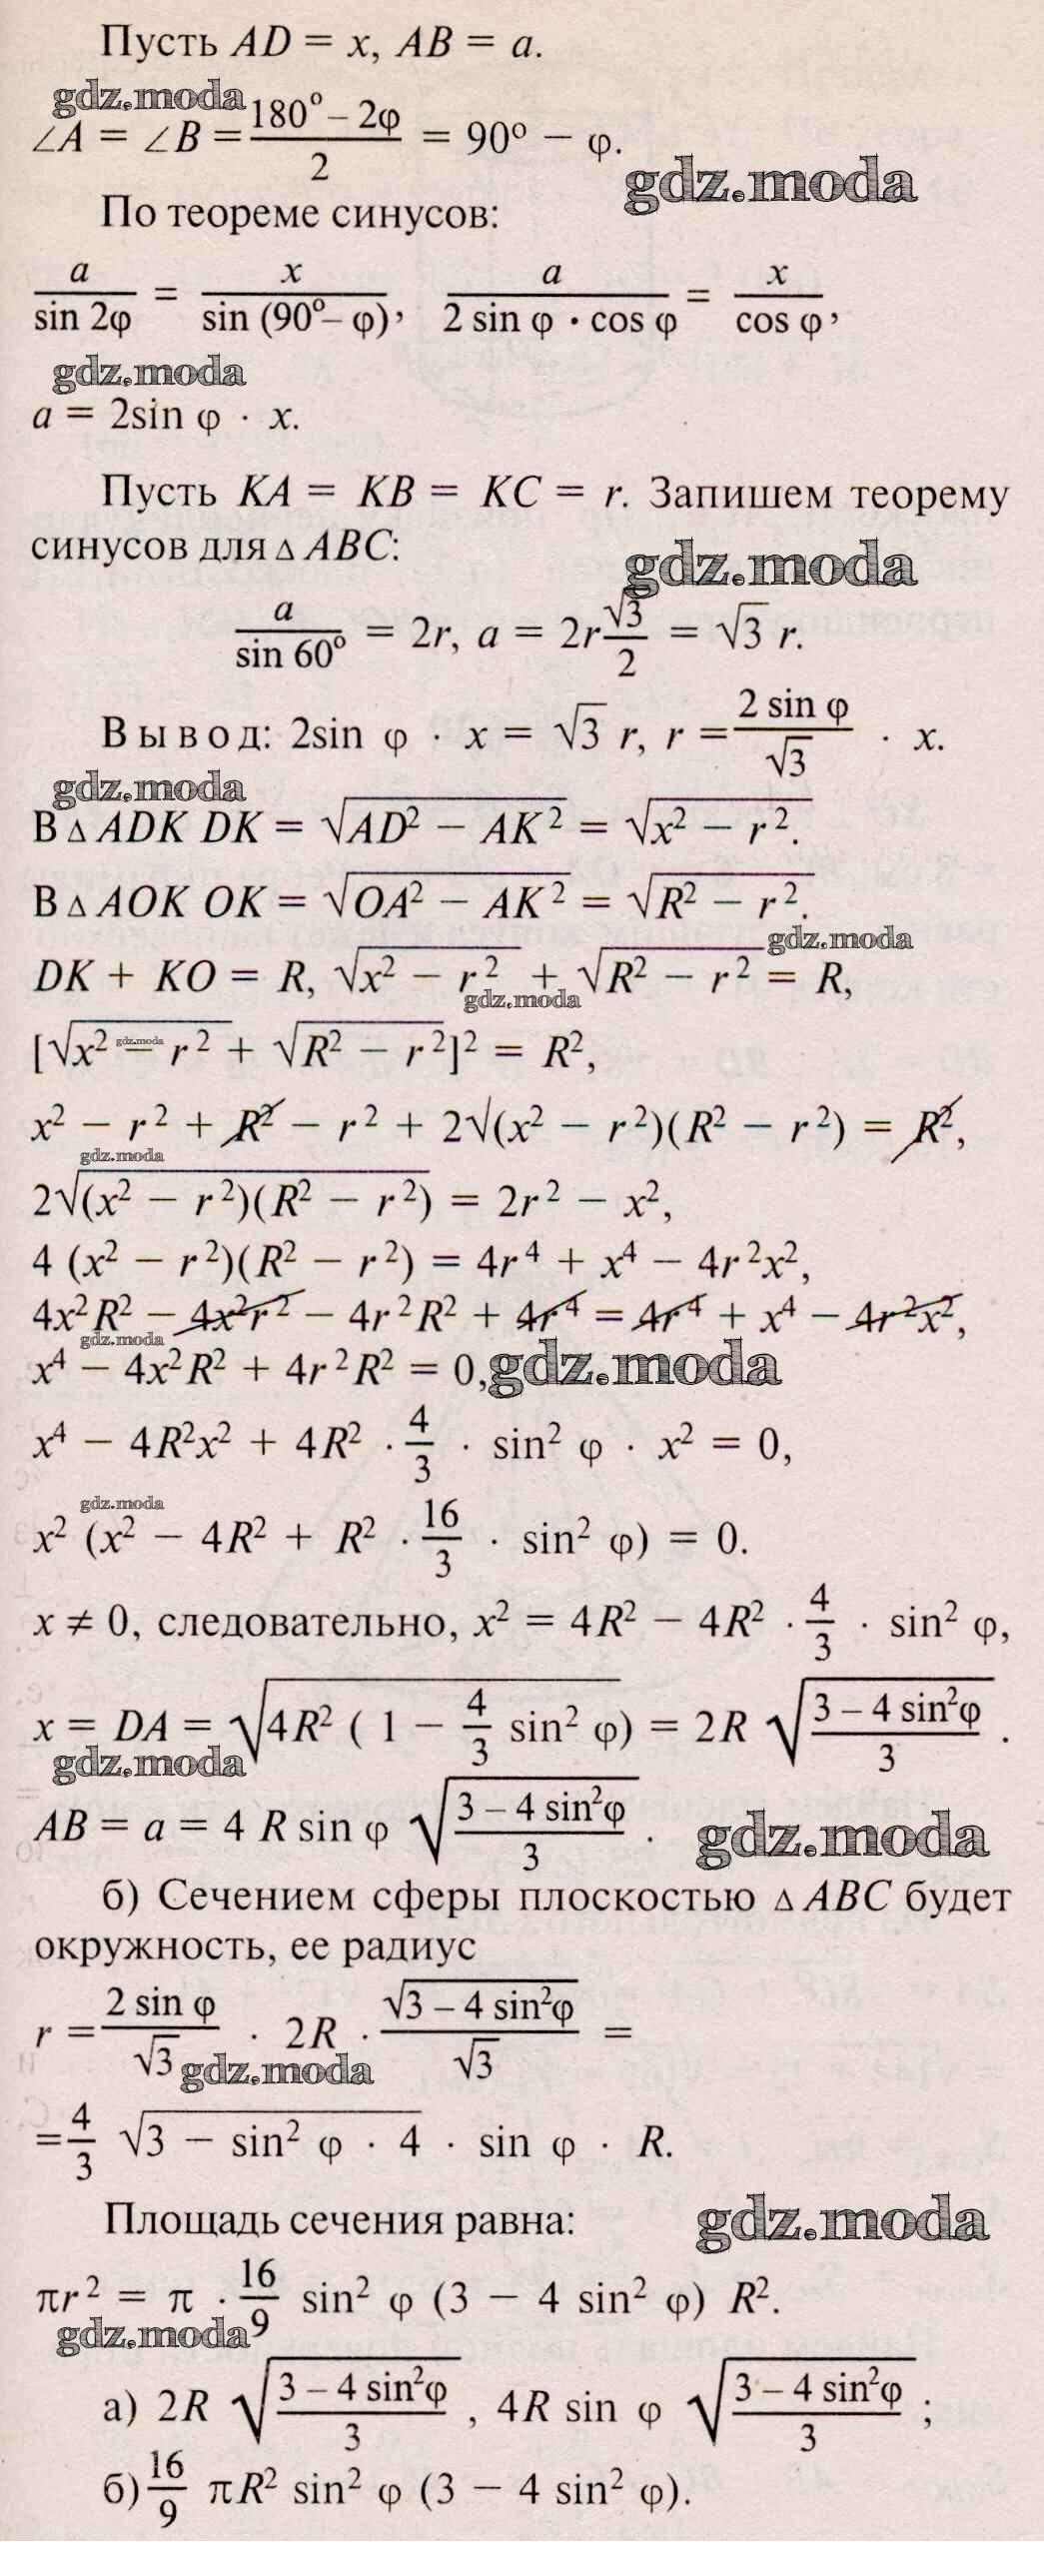 Пусть AD = x, AB = a.
gdz.moda
∠A = ∠B = (180° – 2φ)/2 = 90° – φ.
gdz.moda
По теореме синусов:
a/(sin 2φ) = x/(sin (90° – φ)), a/(2 sin φ · cos φ) = x/(cos φ),
gdz.moda
a = 2sin φ · x.
Пусть KA = KB = KC = r. Запишем теорему
синусов для △ ABC:
gdz.moda
a/(sin 60°) = 2r, a = 2r √3/2 = √3 r.
Вывод: 2sin φ · x = √3 r, r = (2 sin φ)/√3 · x.
gdz.moda
В △ ADK DK = √(AD² – AK²) = √(x² – r²).
В △ AOK OK = √(OA² – AK²) = √(R² – r²).
gdz.moda
DK + KO = R, √(x² – r²) + √(R² – r²) = R,
gdz.moda
[√(x² – r²) + √(R² – r²)]² = R²,
gdz.moda
x² – r² + R² – r² + 2√(x² – r²)(R² – r²) = R²,
gdz.moda
2√((x² – r²)(R² – r²)) = 2r² – x²,
4 (x² – r²)(R² – r²) = 4r⁴ + x⁴ – 4r²x²,
4x²R² – 4x²r² – 4r²R² + 4r⁴ = 4r⁴ + x⁴ – 4r²x²,
gdz.moda
x⁴ – 4x²R² + 4r²R² = 0,
gdz.moda
x⁴ – 4R²x² + 4R² · 4/3 · sin² φ · x² = 0,
gdz.moda
x² (x² – 4R² + R² · 16/3 · sin² φ) = 0.
x ≠ 0, следовательно, x² = 4R² – 4R² · 4/3 · sin² φ,
x = DA = √(4R² ( 1 – 4/3 sin² φ)) = 2R √((3 – 4 sin²φ)/3).
gdz.moda
AB = a = 4 R sin φ √((3 – 4 sin²φ)/3).
gdz.moda
б) Сечением сферы плоскостью △ ABC будет
окружность, ее радиус
r = (2 sin φ)/√3 · 2R · √(3 – 4 sin²φ)/√3 =
gdz.moda
= 4/3 √(3 – sin² φ · 4) · sin φ · R.
Площадь сечения равна:
gdz.moda
πr² = π · 16/9 sin² φ (3 – 4 sin² φ) R².
gdz.moda
а) 2R √((3 – 4 sin²φ)/3), 4R sin φ √((3 – 4 sin²φ)/3);
б) 16/9 πR² sin² φ (3 – 4 sin² φ).